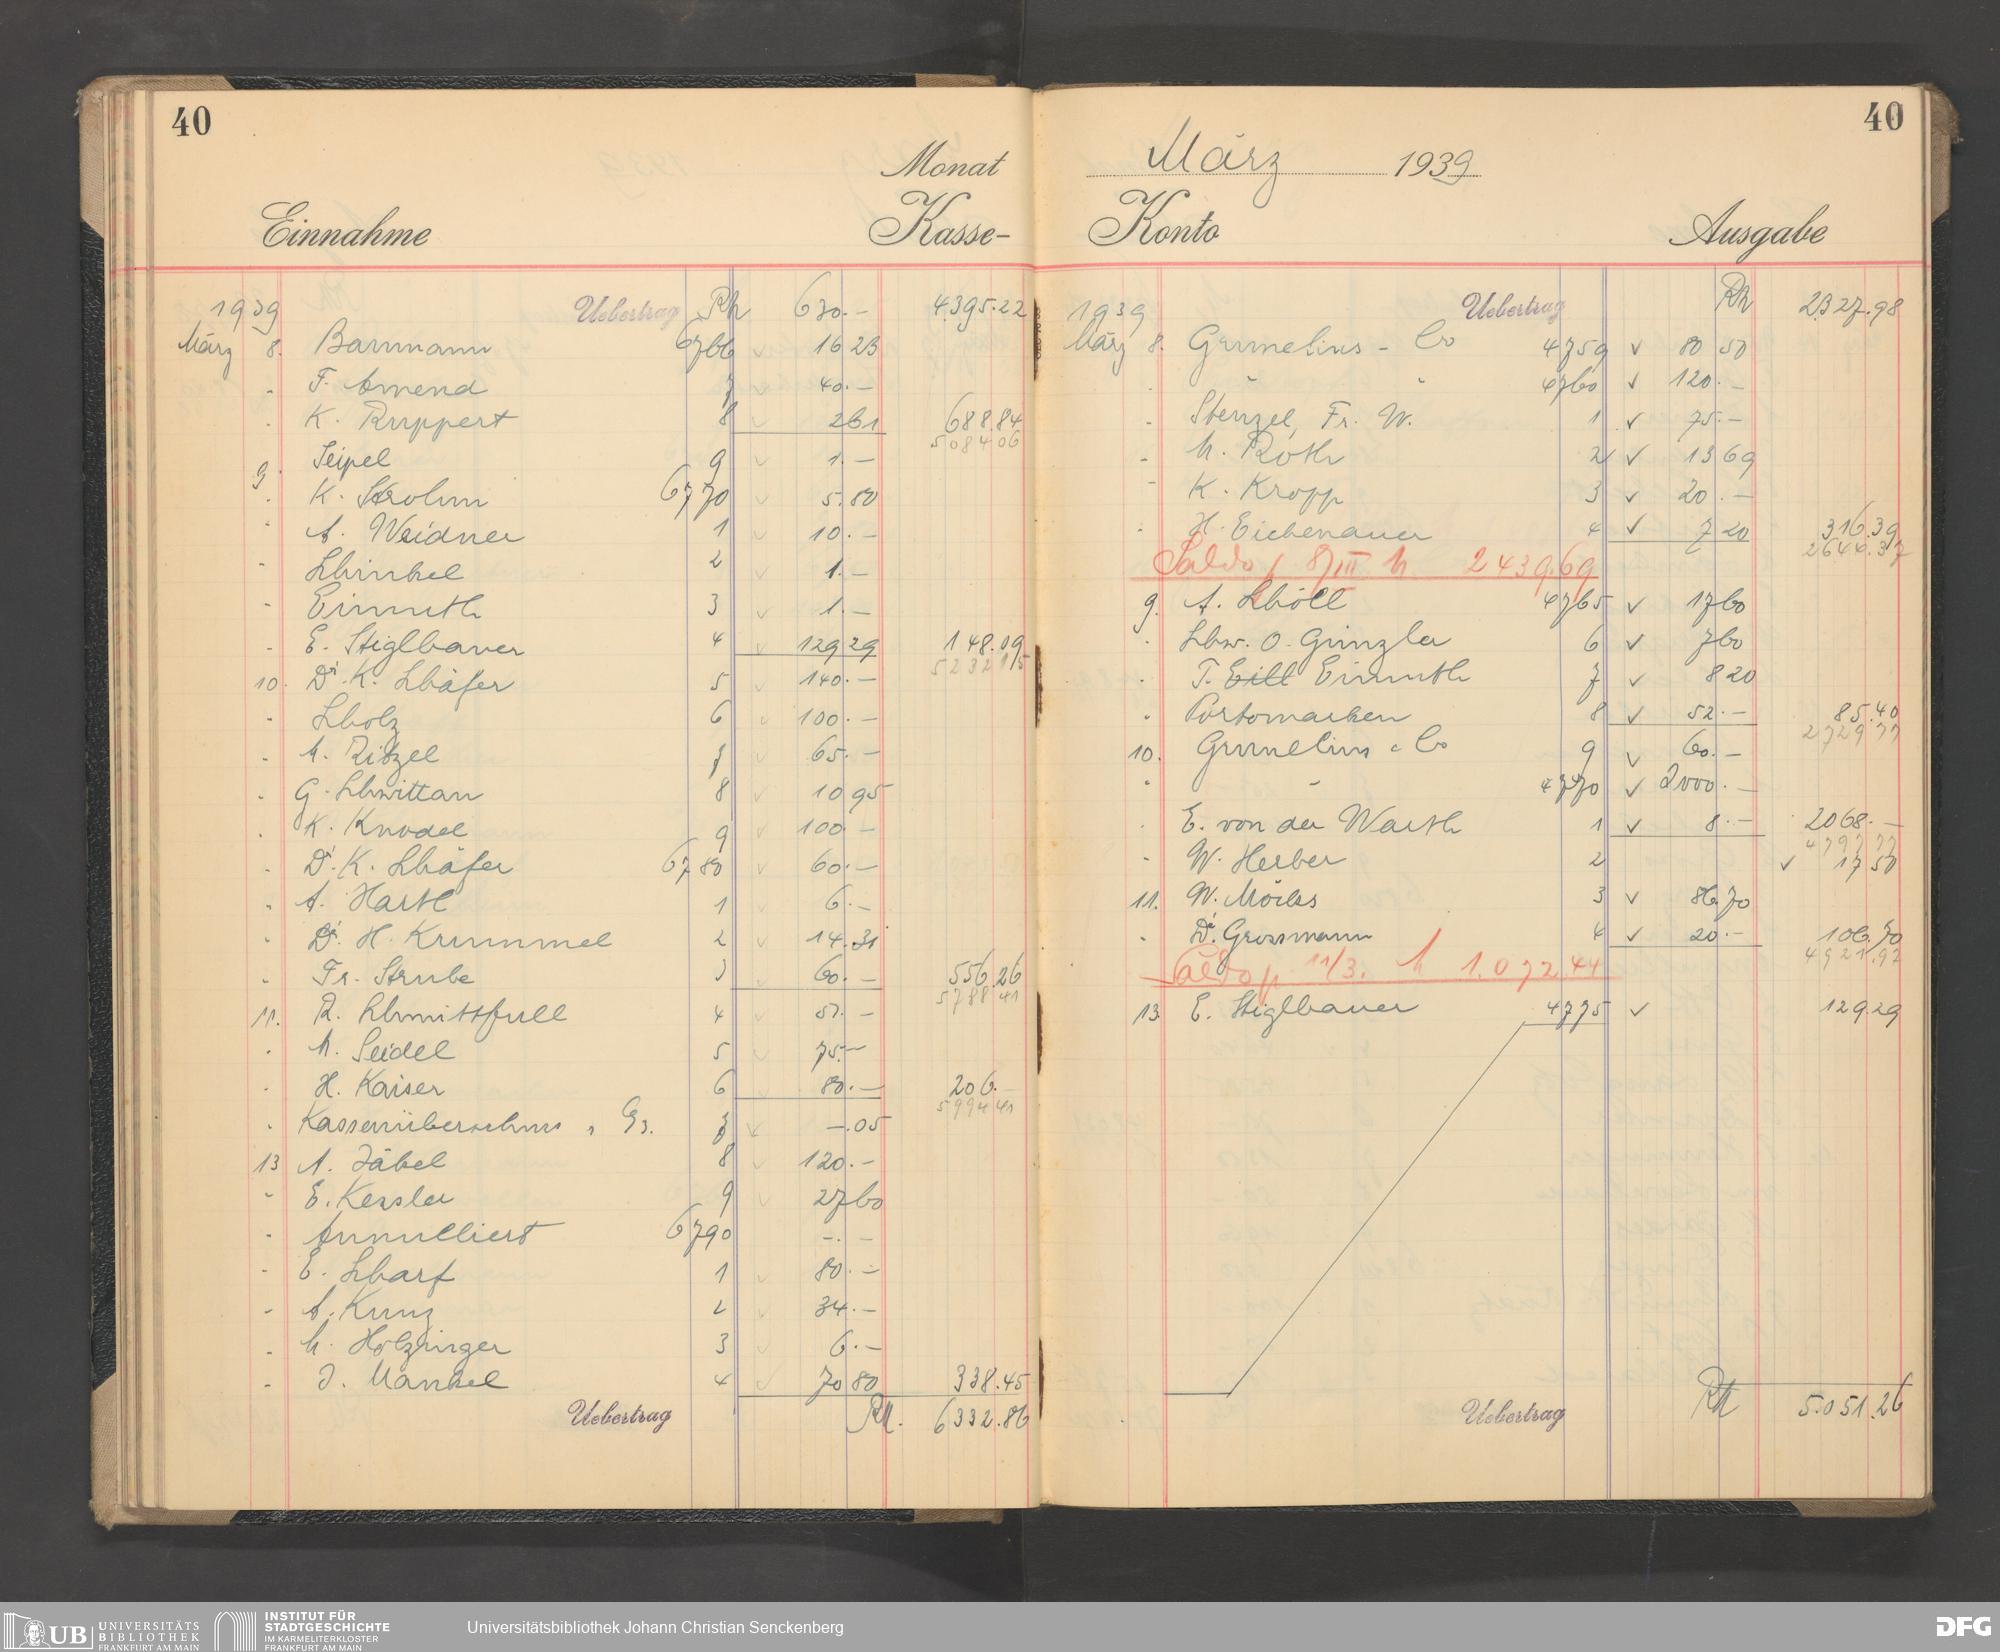 40
Monat
Einnahme Kasse-
1939 Uebertrag 630.— 4395.22
März 8. Barmann 6766 16 23
F. Amend 7 40.—
K. Ruppert 8 261 688.84
508406
9. Seipel 9 1.—
K. Strohm 6770 5.80
A. Weidner 1 10.—
2 1.—
Einmuth 3 1.—
E. Stiglbauer 4 129 29 148.09
523215
10. Dr. K. Schäfer 5 140.—
Scholz 6 100.—
M. Ritzel 7 65.—
G. Schwittan 8 10 95
K. Knodel 9 100 —
Dr. K. Schäfer 6780 60.—
A. Hartl 1 6.—
Dr. H. Krummel 2 14.31
Fr. Strube 3 60.— 556.26
578841
11. R. Schmittfull 4 51.—
M. Seidel 5 75.—
H. Kaiser 6 80.— 206.—
599441
Kassenüberschuss 7 —.05
13 A. Jäbel 8 120.—
E. Kessler 9 27 60
Annulliert 6790 —.—
E. Scharf 1 80.—
A. Kunz 2 34.—
M. Holzinger 3 6.—
J. Mankel 4 70 80 338.45
Uebertrag RM. 6332.86
40
März 1939
Konto Ausgabe
1939 Uebertrag RM 2327.98
März 8. Grunelius & Co 4759 80 50
" " 4760 120.—
Stenzel, Fr. W. 1 75.—
M. Roth 2 13 69
K. Kropp 3 20.—
H. Eichenauer 4 7 20 316.39
2644.37
Saldo p 8/III M 2439.69
9. A. Schöll 4765 17 60
Schw. O. Ginzler 6 7 60
T. Eill Einmuth 7 8 20
Portomarken 8 52.— 85.40
272977
10. Grunelius & Co 9 60.—
" 4770 2000.—
E. von der Warth 1 8.— 2068.—
479777
W. Herber 2 17 50
11. W. Mörks 3 86.70
Dr. Grossmann 4 20.— 106.70
4921.97
Saldo p 11/3. M 1.072.44
13 E. Stiglbauer 4775 129.29
Uebertrag RM 5.051.26
UB UNIVERSITÄTS
BIBLIOTHEK
FRANKFURT AM MAIN
INSTITUT FÜR
STADTGESCHICHTE
IM KARMELITERKLOSTER
FRANKFURT AM MAIN
Universitätsbibliothek Johann Christian Senckenberg
DFG